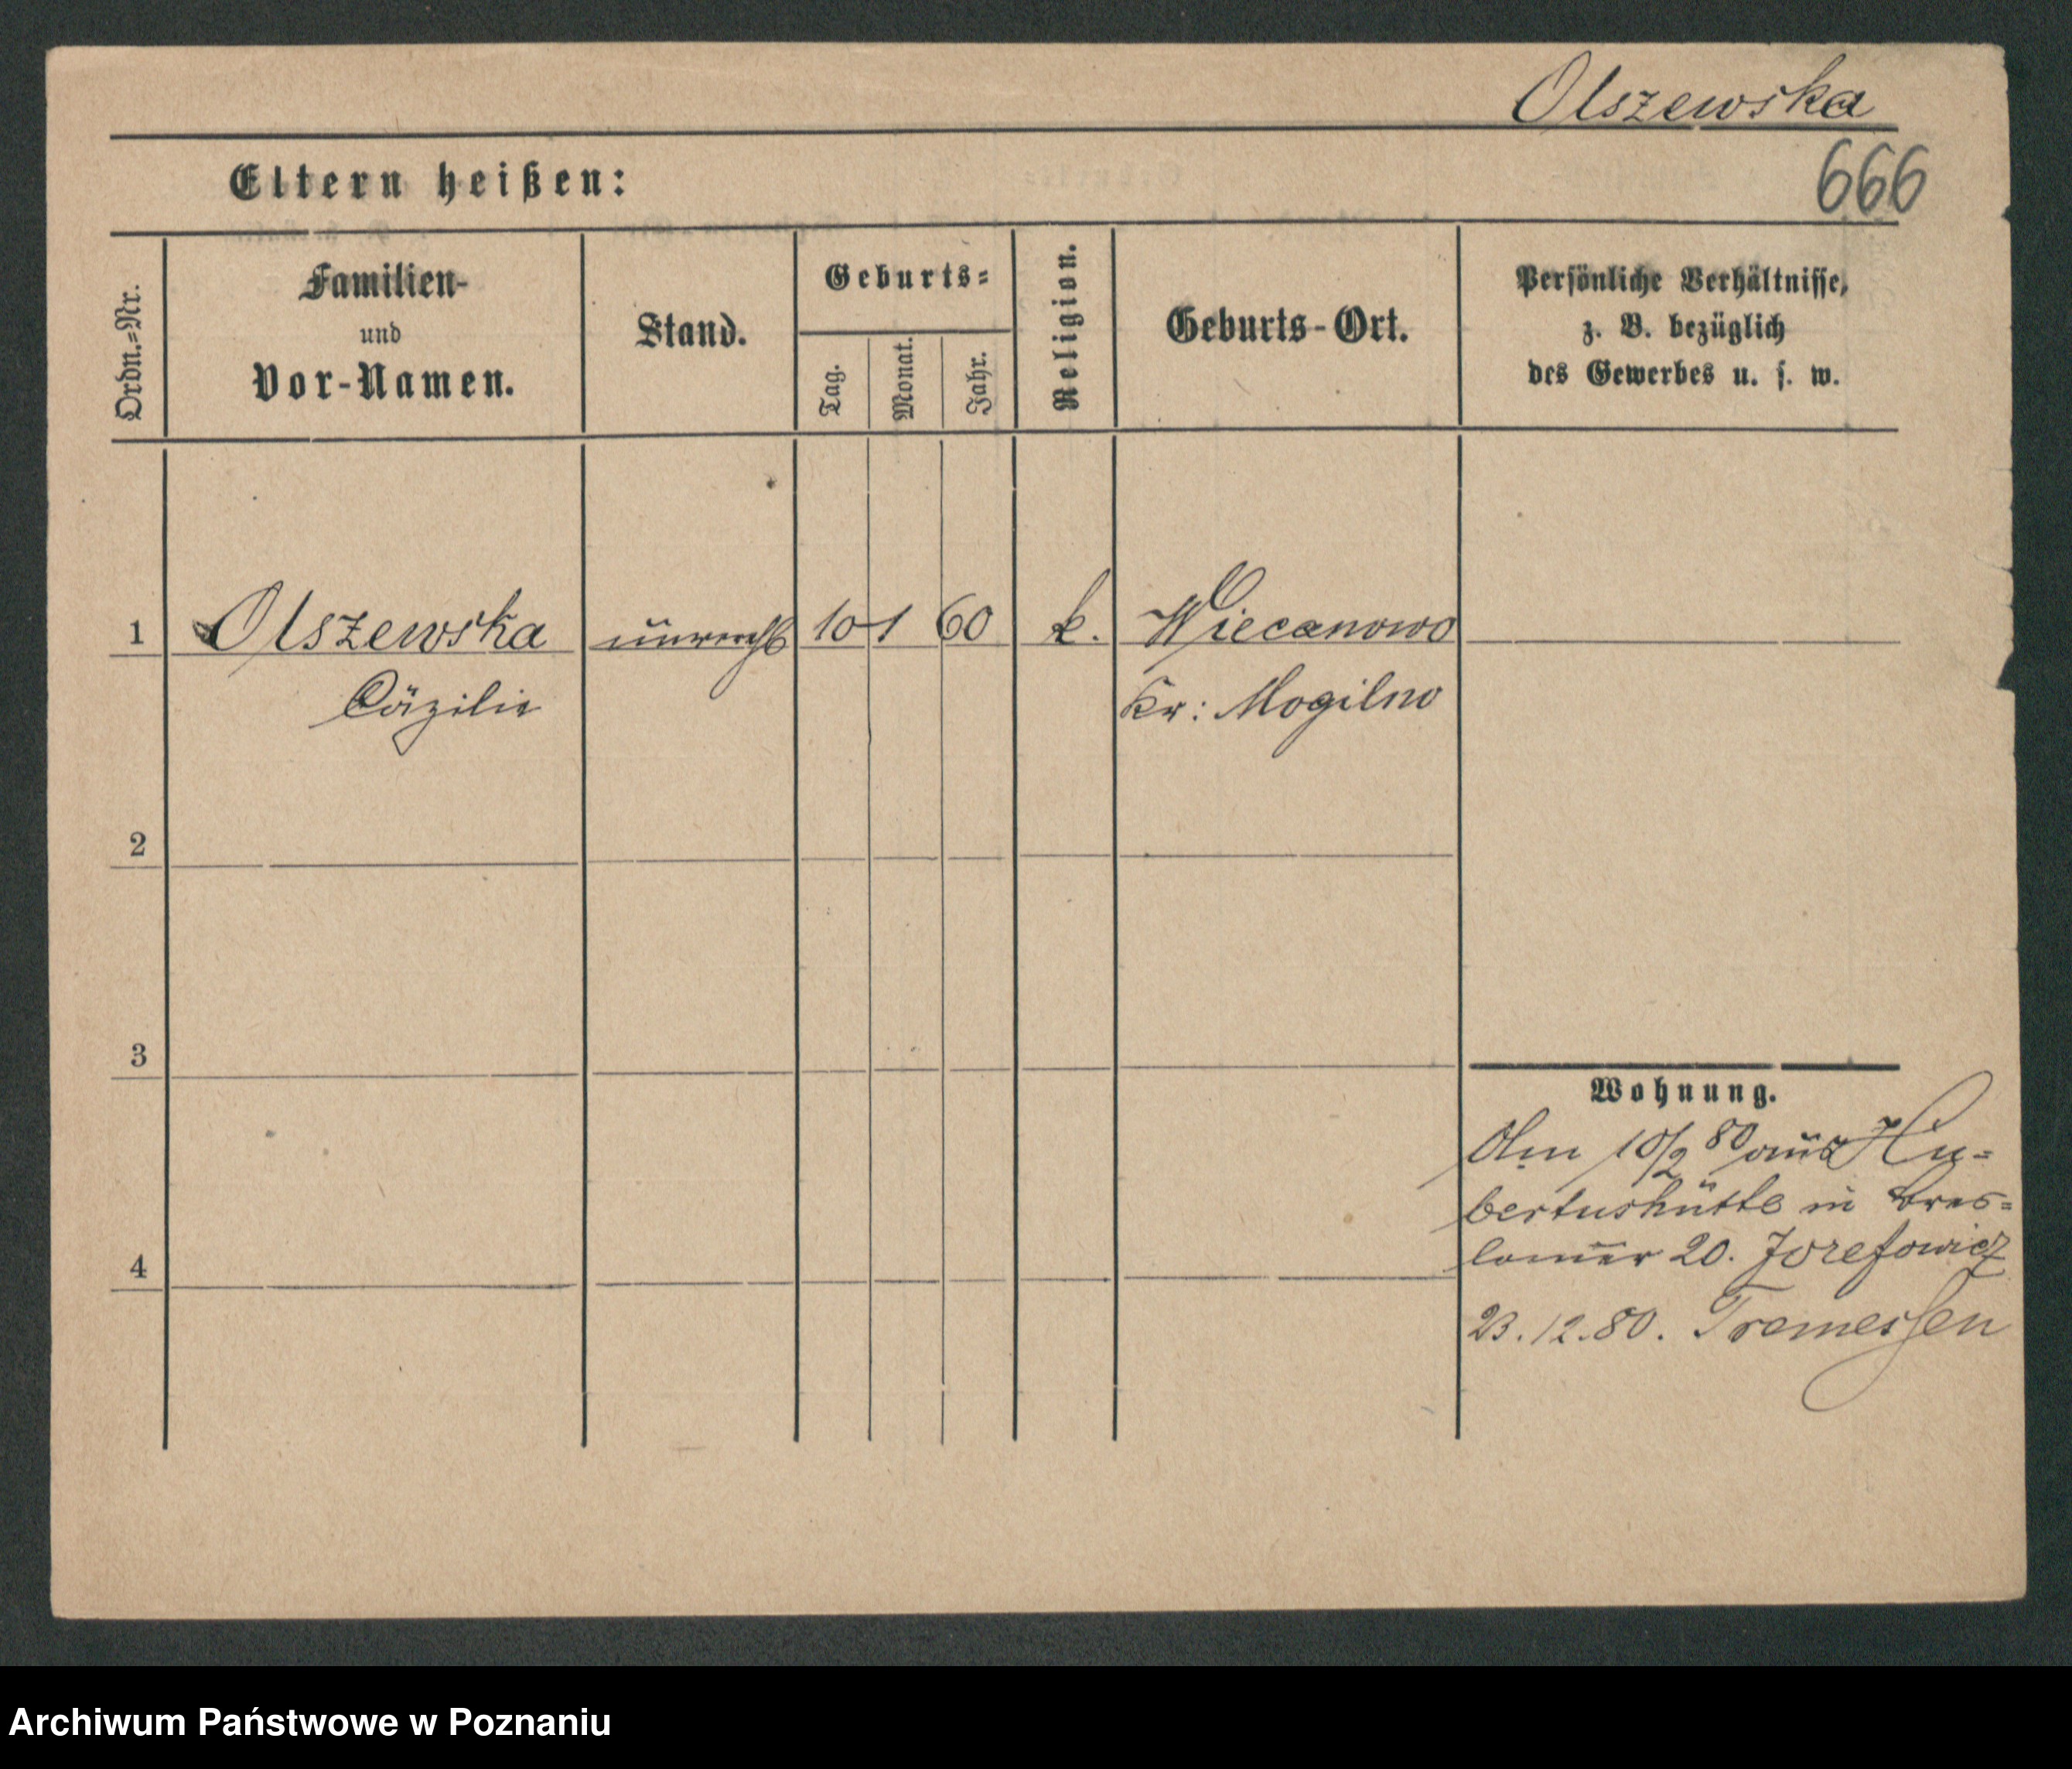 Olszewska
666
Eltern heißen:
Ordn.=Nr.
Familien-
und
Vor-Namen.
Stand.
Geburts=
Tag.
Monat.
Jahr.
Religion.
Geburts-Ort.
Persönliche Verhältnisse,
z. B. bezüglich
des Gewerbes u. s. w.
1 Olszewska 10 1 60 k. Wiecanowo
Cäzilie Kr: Mogilno
2
3
4
Wohnung.
Am 10/2 80 aus Hu=
bertushütte in Bres=
lauer 20. Jozefowicz
23.12.80. Tremessen
Archiwum Państwowe w Poznaniu